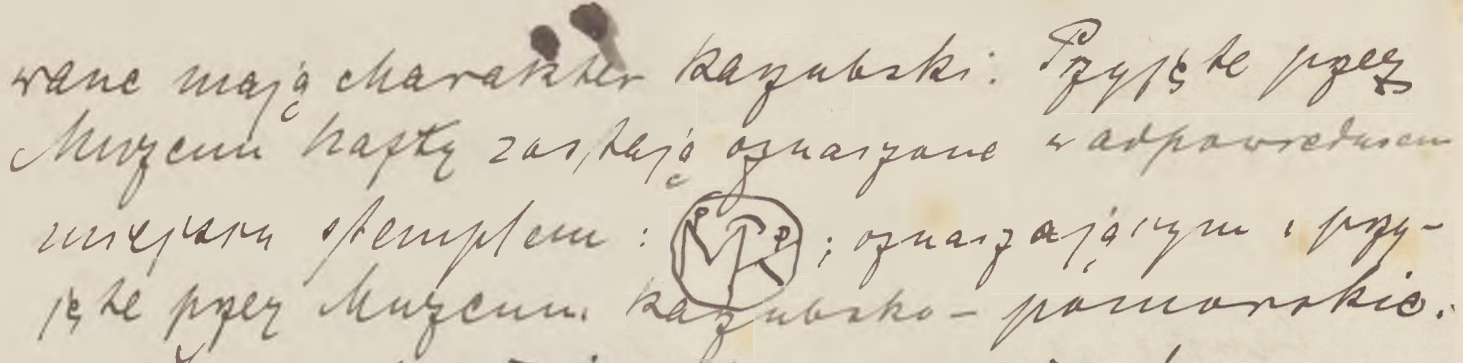 wane mają charakter kaszubski. Przyjęte przez
Muzeum hafty zostają oznaczone w odpowiedniem
miejscu stemplem: MR; oznaczającym: przy-
jęte przez Muzeum kaszubsko-pomorskie.